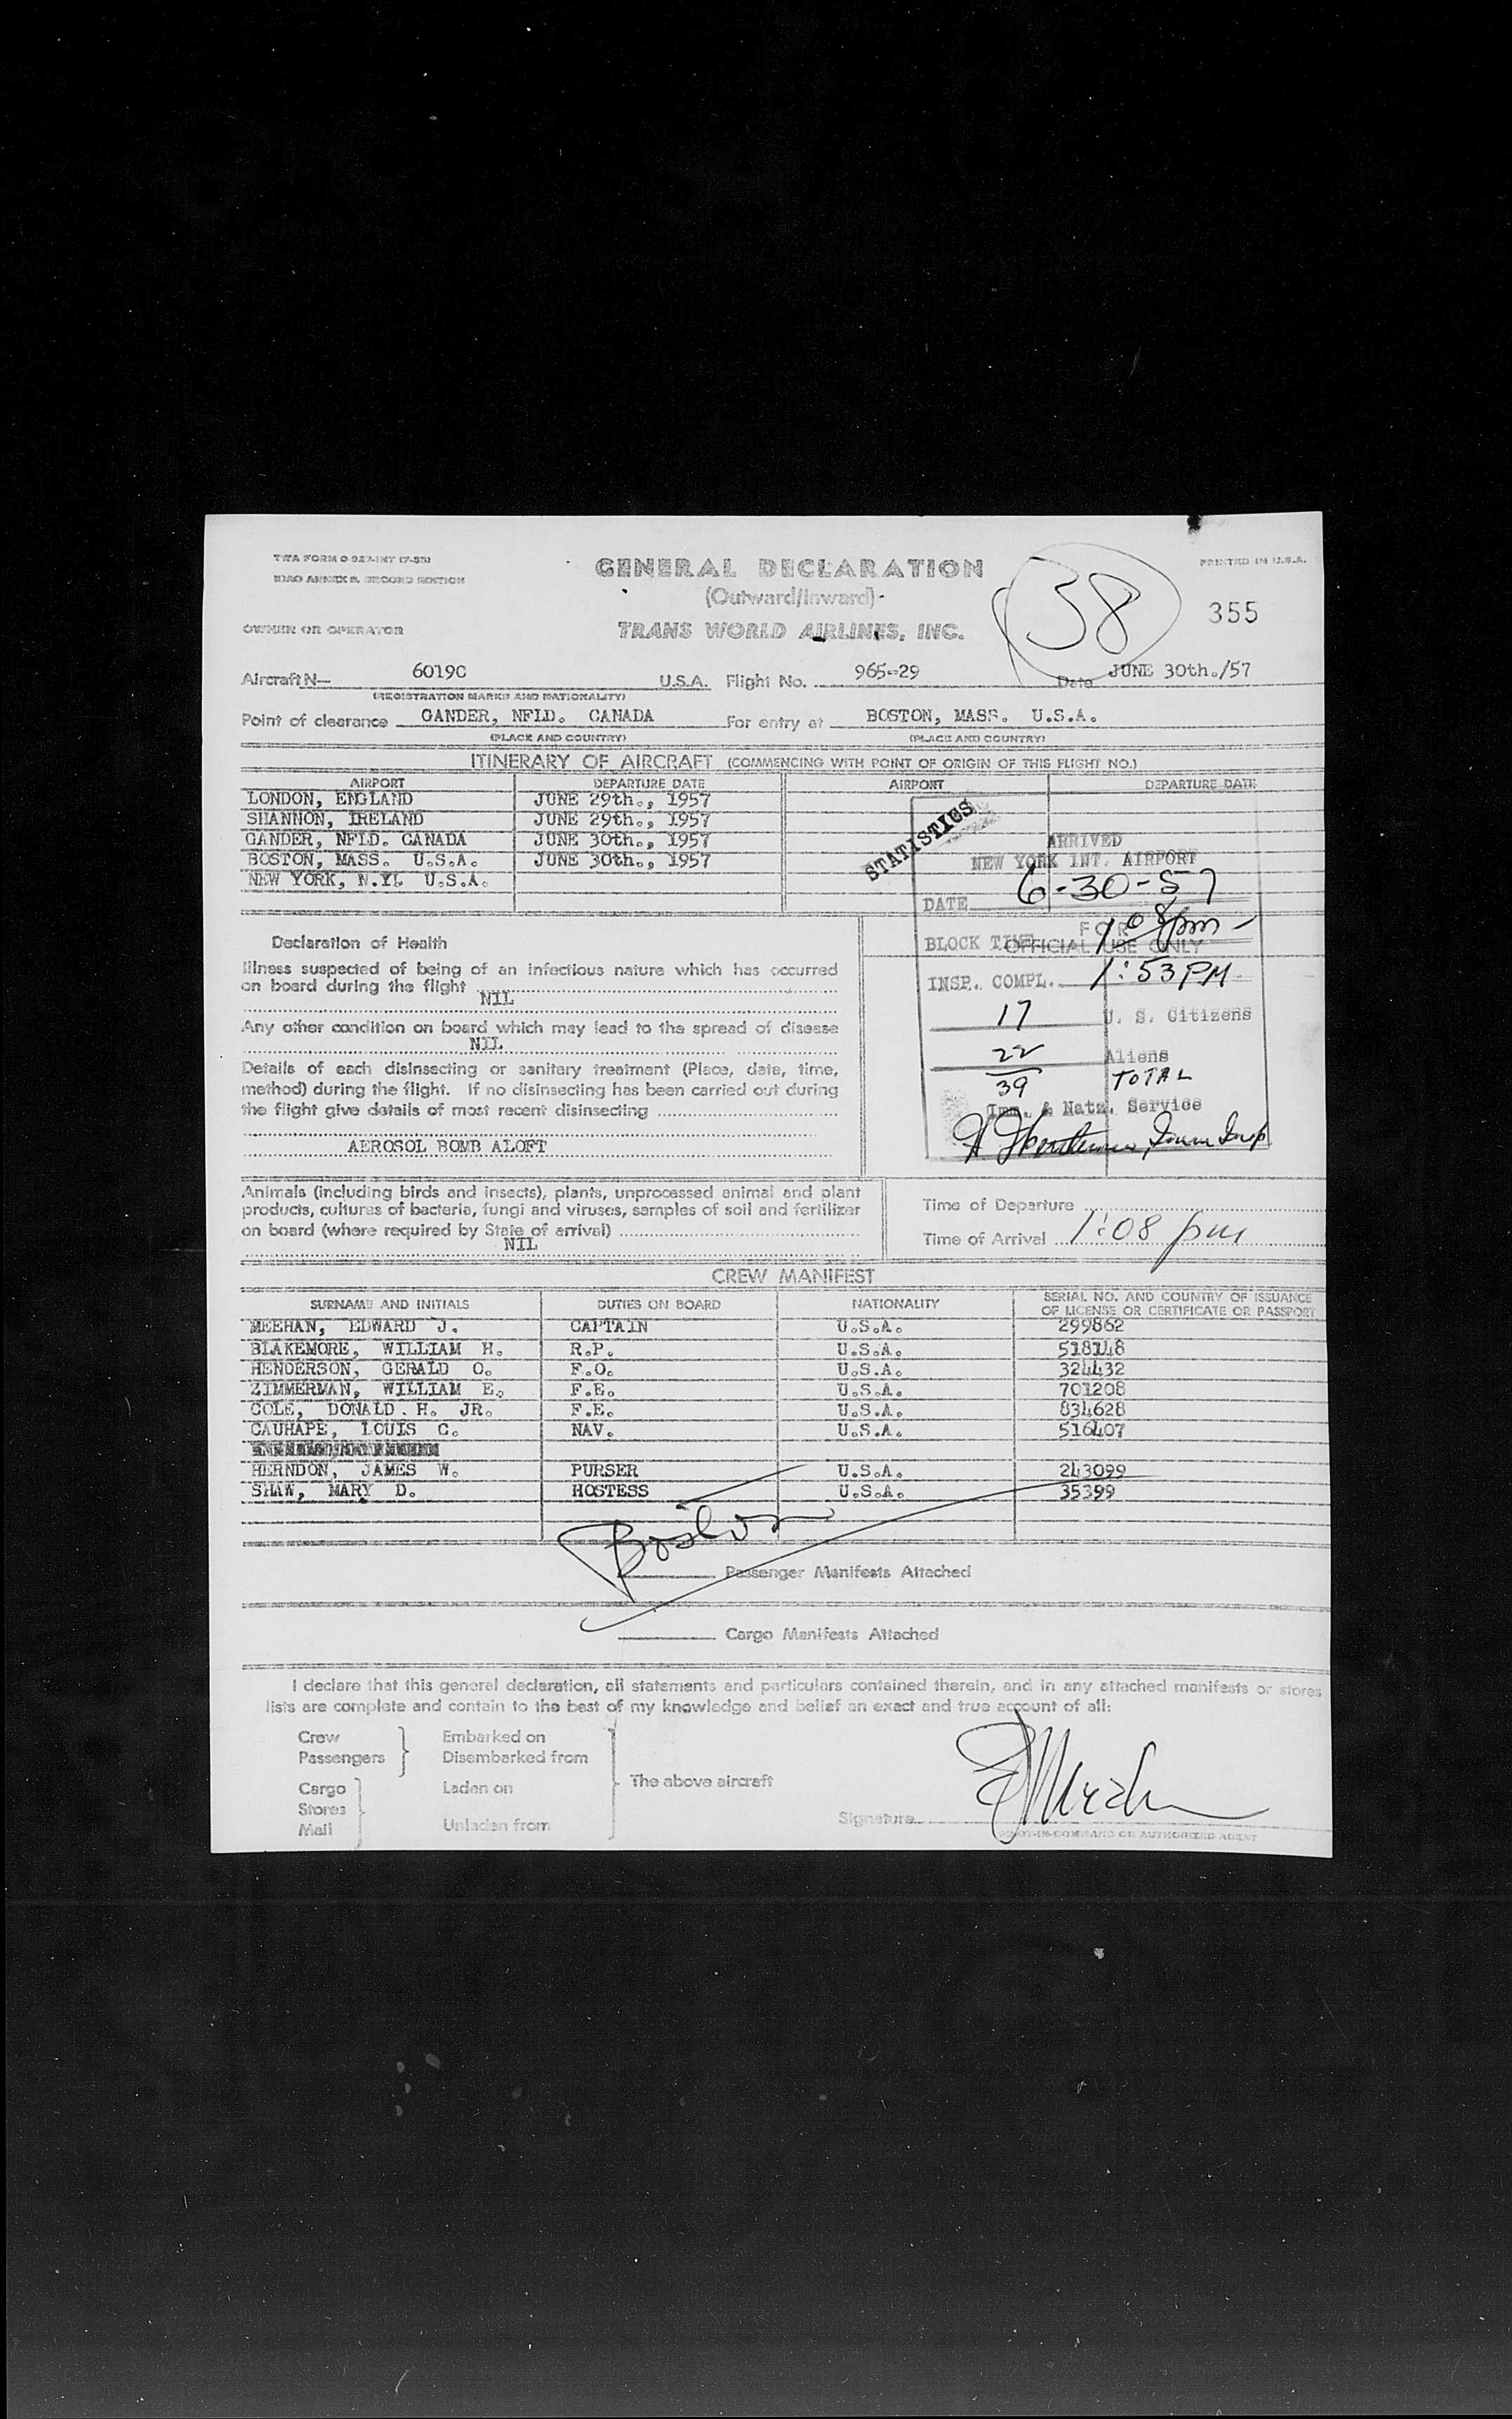 TWA FORM O-927-INT (7-55)
ICAO ANNEX 9, SECOND EDITION
GENERAL DECLARATION
PRINTED IN U.S.A.
(Outward/Inward)
38
355
OWNER OR OPERATOR
TRANS WORLD AIRLINES, INC.
Aircraft N— 6019C U.S.A. Flight No. 965-29 Date JUNE 30th./57
(REGISTRATION MARKS AND NATIONALITY)
Point of clearance GANDER, NFLD. CANADA For entry at BOSTON, MASS. U.S.A.
(PLACE AND COUNTRY) (PLACE AND COUNTRY)
ITINERARY OF AIRCRAFT (COMMENCING WITH POINT OF ORIGIN OF THIS FLIGHT NO.)
AIRPORT DEPARTURE DATE AIRPORT DEPARTURE DATE
LONDON, ENGLAND JUNE 29th., 1957
SHANNON, IRELAND JUNE 29th., 1957
GANDER, NFLD. CANADA JUNE 30th., 1957
BOSTON, MASS. U.S.A. JUNE 30th., 1957
NEW YORK, N.Y. U.S.A.
STATISTICS
ARRIVED
NEW YORK INT. AIRPORT
DATE 6-30-57
FOR
OFFICIAL USE ONLY
BLOCK TIME 1:08pm
INSP. COMPL. 1:53 PM
17 U. S. Citizens
22 Aliens
39 TOTAL
Imm. & Natz. Service
Declaration of Health
Illness suspected of being of an infectious nature which has occurred
on board during the flight
NIL
Any other condition on board which may lead to the spread of disease
NIL
Details of each disinsecting or sanitary treatment (Place, date, time,
method) during the flight. If no disinsecting has been carried out during
the flight give details of most recent disinsecting
AEROSOL BOMB ALOFT
Animals (including birds and insects), plants, unprocessed animal and plant
products, cultures of bacteria, fungi and viruses, samples of soil and fertilizer
on board (where required by State of arrival)
NIL
Time of Departure
Time of Arrival 1:08 pm
CREW MANIFEST
SURNAME AND INITIALS DUTIES ON BOARD NATIONALITY SERIAL NO. AND COUNTRY OF ISSUANCE
OF LICENSE OR CERTIFICATE OR PASSPORT
MEEHAN, EDWARD J. CAPTAIN U.S.A. 299862
BLAKEMORE, WILLIAM H. R.P. U.S.A. 518148
HENDERSON, GERALD O. F.O. U.S.A. 324432
ZIMMERMAN, WILLIAM E. F.E. U.S.A. 701208
COLE, DONALD H. JR. F.E. U.S.A. 834628
CAUHAPE, LOUIS C. NAV. U.S.A. 516407
HERNDON, JAMES W. PURSER U.S.A. 243099
SHAW, MARY D. HOSTESS U.S.A. 35399
Boston
Passenger Manifests Attached
Cargo Manifests Attached
I declare that this general declaration, all statements and particulars contained therein, and in any attached manifests or stores
lists are complete and contain to the best of my knowledge and belief an exact and true account of all:
Crew Embarked on
Passengers Disembarked from
The above aircraft
Cargo Laden on
Stores
Mail Unladen from
Signature
PILOT-IN-COMMAND OR AUTHORIZED AGENT